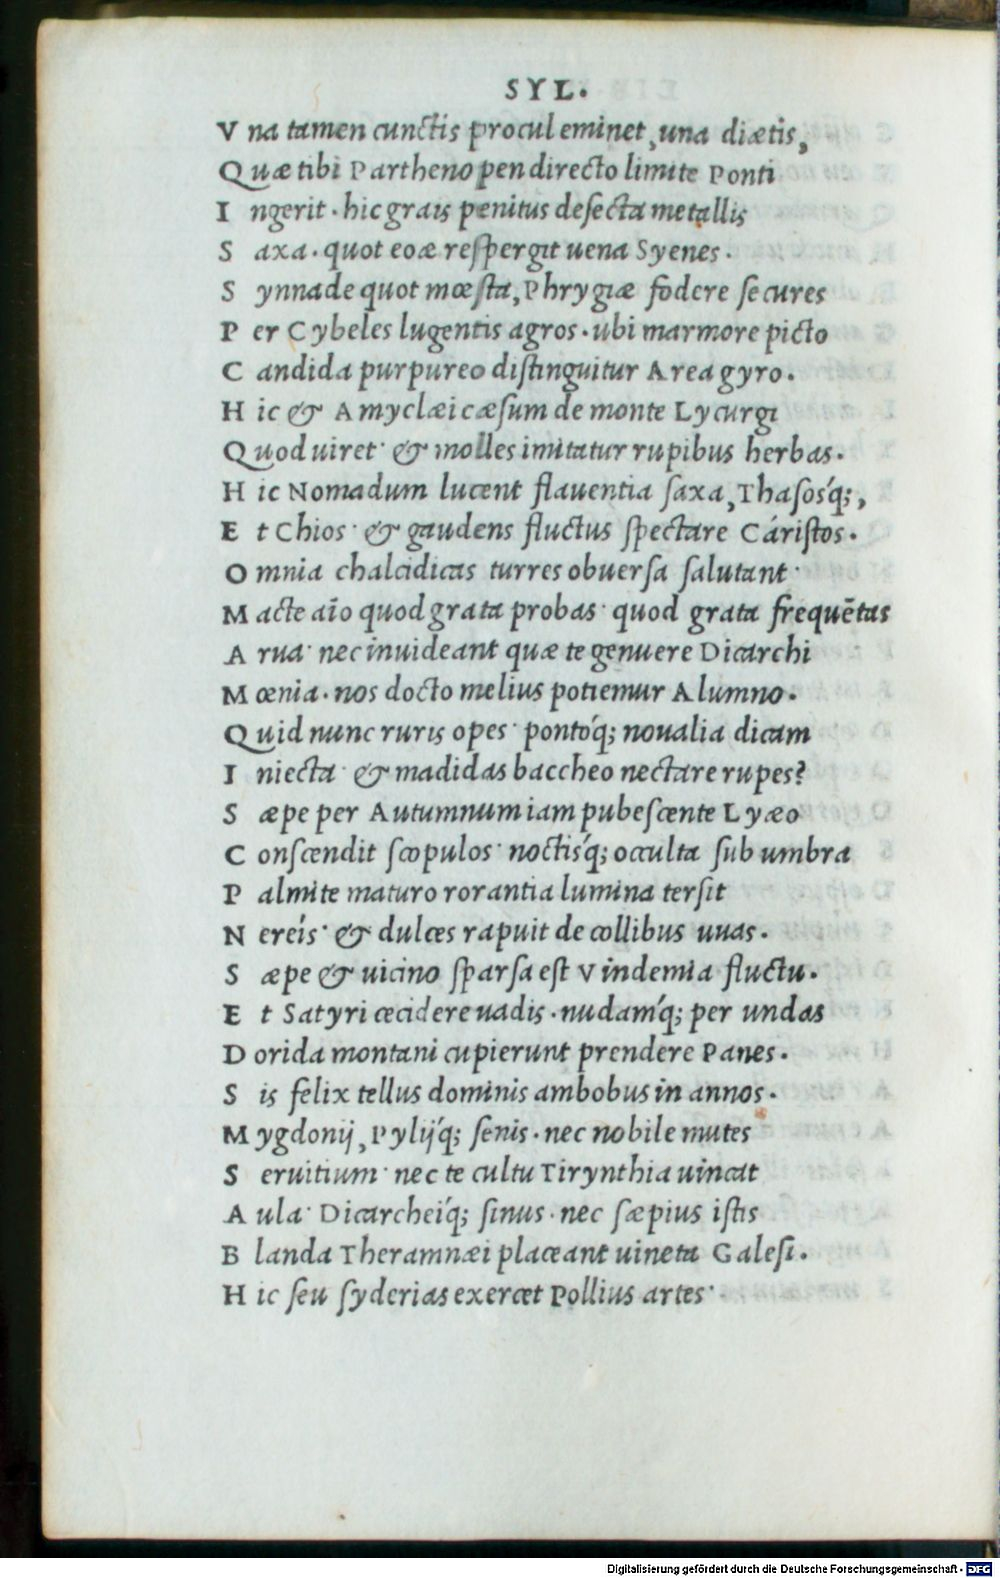 SYL.
V na tamen cunctis procul eminet, una diætis,
Quæ tibi Parthenopen directo limite Ponti
I ngerit · hic grais penitus desecta metallis
S axa · quot eoæ respergit uena Syenes ·
S ynnade quot mœsta, Phrygiæ fodere secures
P er Cybeles lugentis agros · ubi marmore picto
C andida purpureo distinguitur Area gyro ·
H ic & Amyclæi cæsum de monte Lycurgi
Quod uiret · & molles imitatur rupibus herbas ·
H ic Nomadum lucent flauentia saxa, Thasosq́;,
E t Chios · & gaudens fluctus spectare Cáristos ·
O mnia chalcidicas turres obuersa salutant ·
M acte aĩo quod grata probas · quod grata frequẽtas
A rua · nec inuideant quæ te genuere Dicarchi
M œnia · nos docto melius potiemur Alumno ·
Quid nunc ruris opes · pontoq́; noualia dicam
I niecta · & madidas baccheo nectare rupes?
S æpe per Autumnum iam pubescente Lyæo
C onscendit scopulos · noctisq́; occulta sub umbra
P almite maturo rorantia lumina tersit
N ereís · & dulces rapuit de collibus uuas ·
S æpe & uicino sparsa est Vindemia fluctu ·
E t Satyri cecidere uadis · nudamq́; per undas
D orida montani cupierunt prendere Panes ·
S is felix tellus dominis ambobus in annos ·
M ygdonij, Pylijq́; senis · nec nobile mutes
S eruitium · nec te cultu Tirynthia uincat
A ula · Dicarcheiq́; sinus · nec sæpius istis
B landa Theramnæi placeant uineta Galesi ·
H ic seu syderias exercet Pollius artes ·
Digitalisierung gefördert durch die Deutsche Forschungsgemeinschaft - DFG